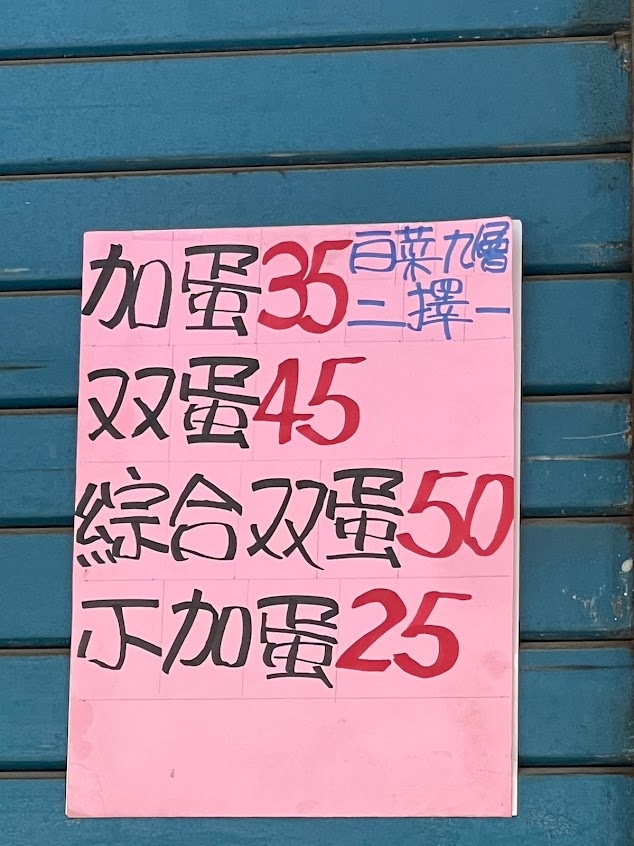 加蛋35 白菜九層
二擇一
双蛋45
綜合双蛋50
不加蛋25